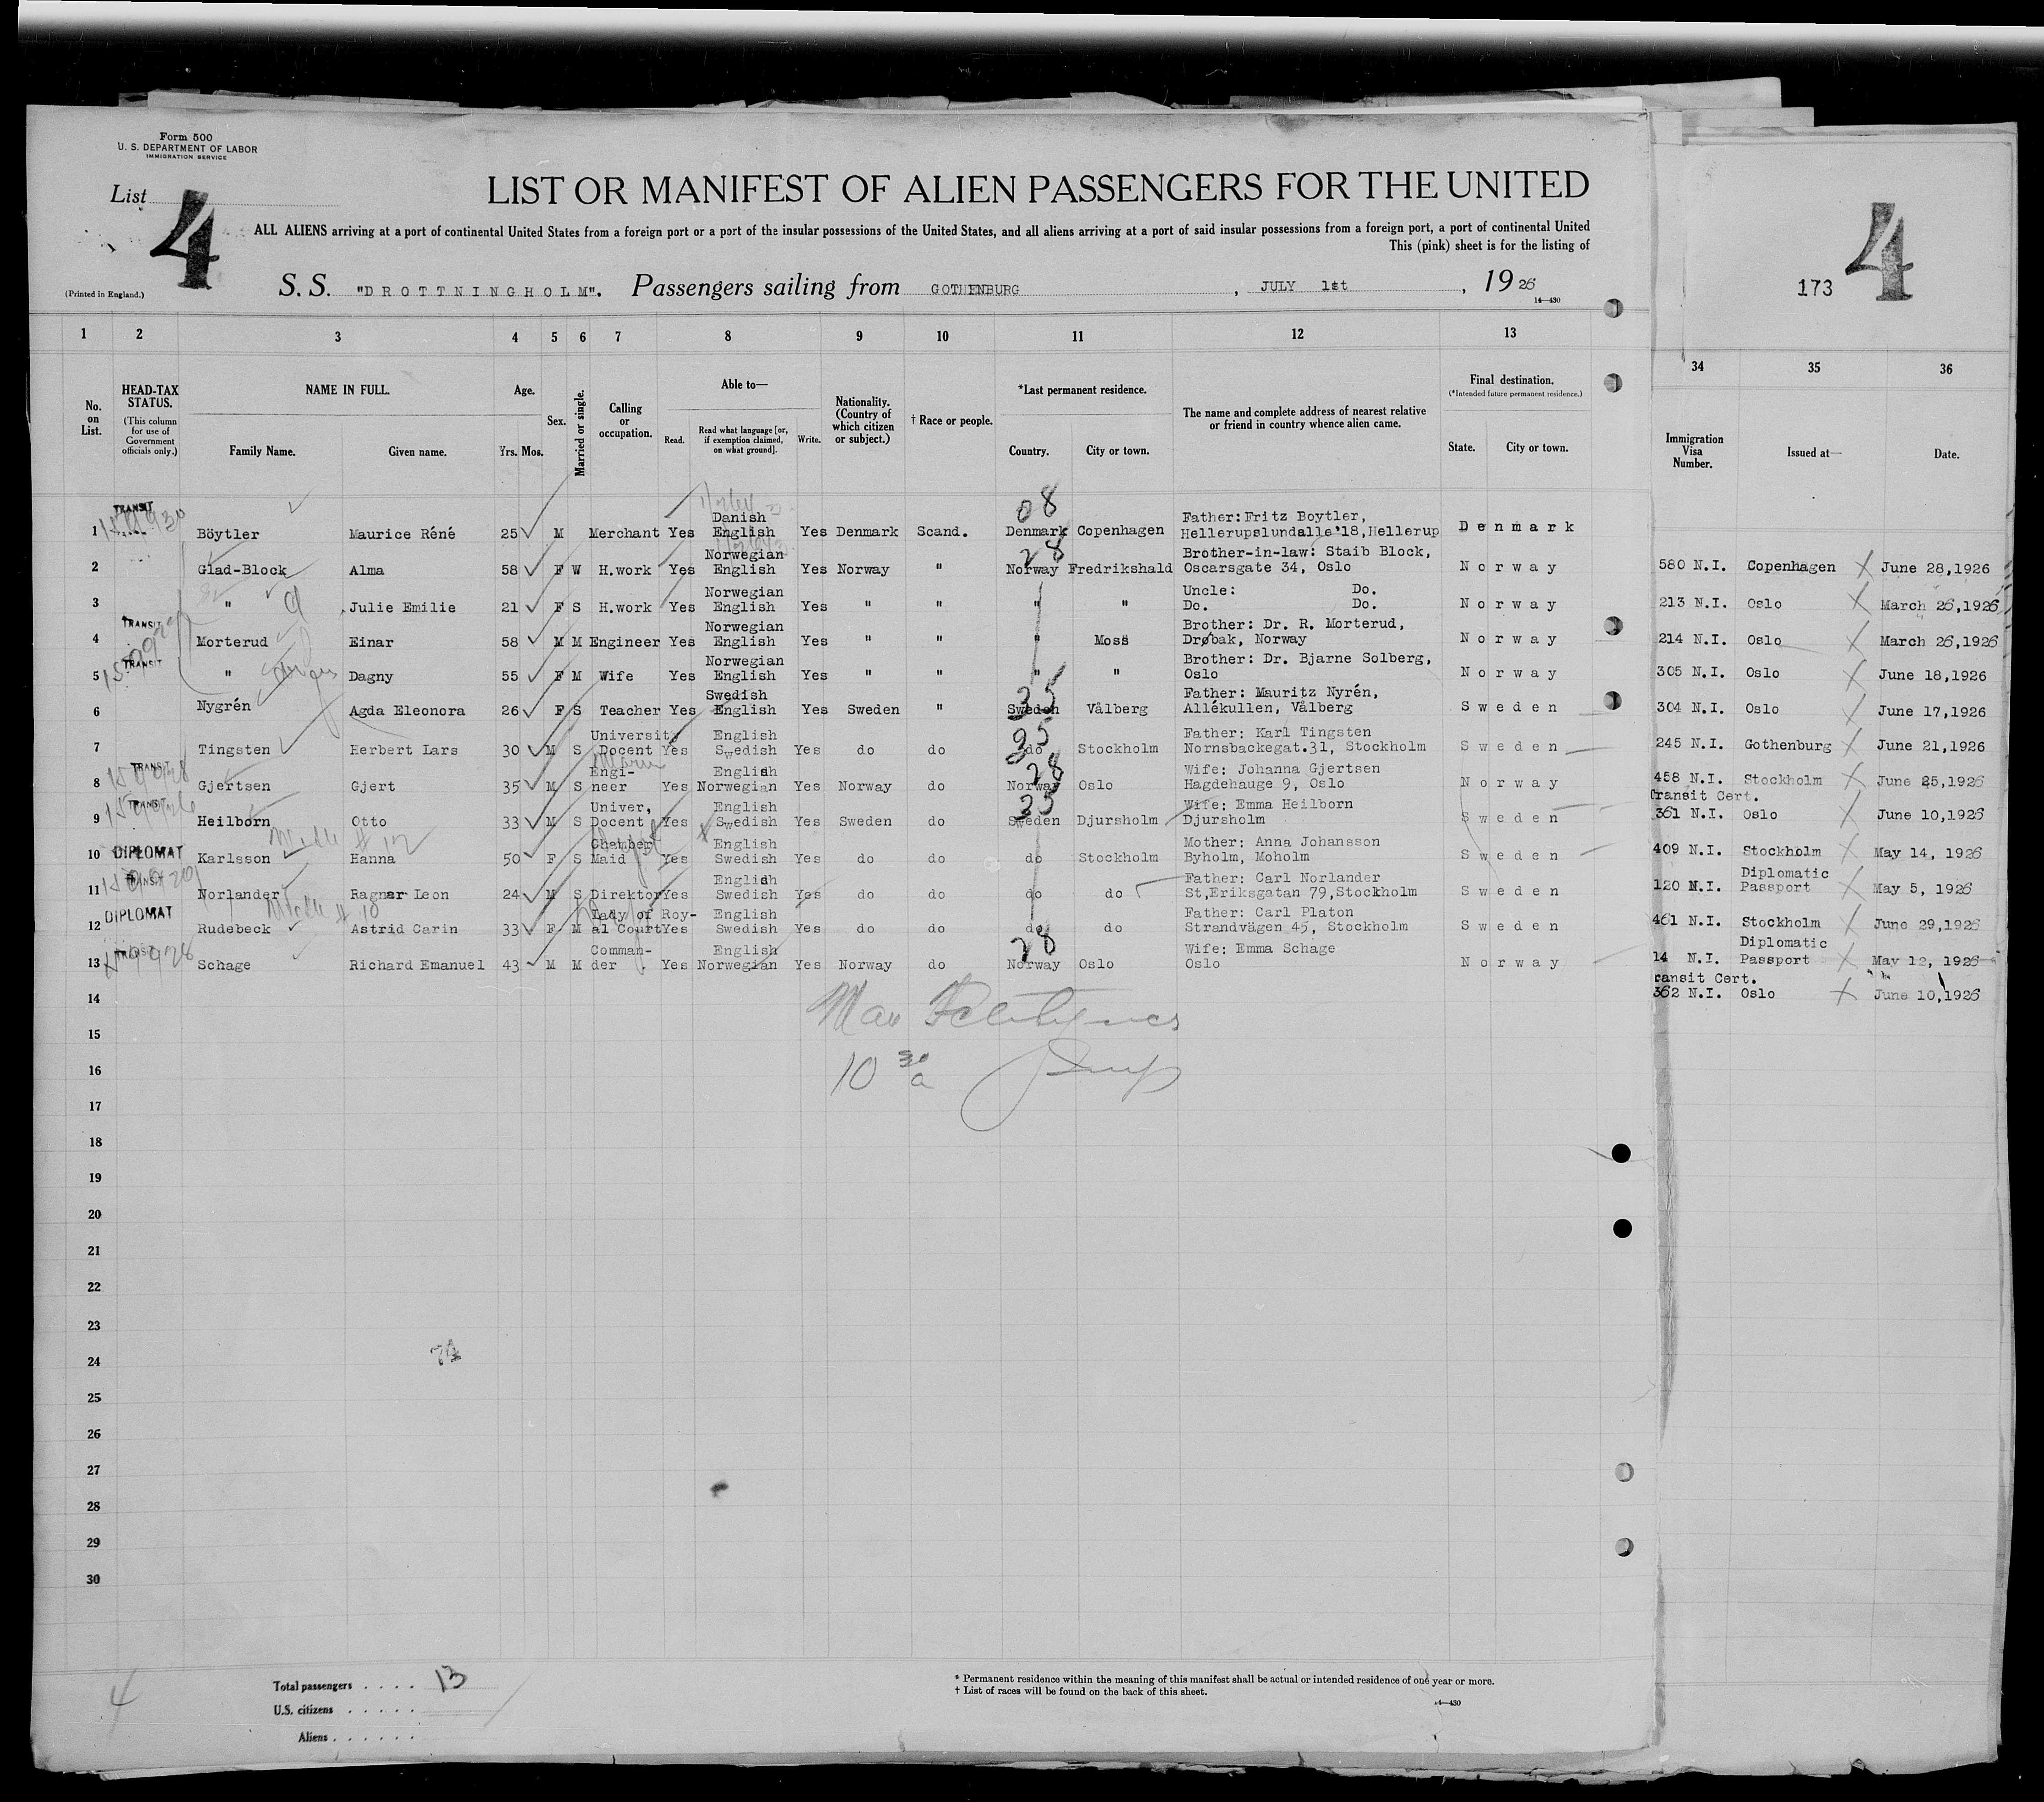 Form 500
U. S. DEPARTMENT OF LABOR
IMMIGRATION SERVICE
List
4
LIST OR MANIFEST OF ALIEN PASSENGERS FOR THE UNITED
ALL ALIENS arriving at a port of continental United States from a foreign port or a port of the insular possessions of the United States, and all aliens arriving at a port of said insular possessions from a foreign port, a port of continental United
This (pink) sheet is for the listing of
(Printed in England.)
S. S. "DROTTNINGHOLM". Passengers sailing from GOTHENBURG, JULY 1st, 1926
14—430
173
4
1 2 3 4 5 6 7 8 9 10 11 12 13 34 35 36
No. on List.
HEAD-TAX STATUS.
(This column for use of Government officials only.)
NAME IN FULL.
Family Name. Given name.
Age.
Yrs. Mos.
Sex.
Married or single.
Calling or occupation.
Able to—
Read. Read what language [or, if exemption claimed, on what ground]. Write.
Nationality. (Country of which citizen or subject.)
† Race or people.
*Last permanent residence.
Country. City or town.
The name and complete address of nearest relative or friend in country whence alien came.
Final destination.
(*Intended future permanent residence.)
State. City or town.
Immigration Visa Number.
Issued at—
Date.
TRANSIT Danish 08 Father:Fritz Boytler,
1 Böytler Maurice Réné 25 M Merchant Yes English Yes Denmark Scand. Denmark Copenhagen Hellerupslundalle'18,Hellerup Denmark
Norwegian 28 Brother-in-law: Staib Block,
2 Glad-Block Alma 58 F W H.work Yes English Yes Norway " Norway Fredrikshald Oscarsgate 34, Oslo Norway 580 N.I. Copenhagen June 28,1926
Norwegian Uncle: Do.
3 " Julie Emilie 21 F S H.work Yes English Yes " " " " Do. Do. Norway 213 N.I. Oslo March 26,1926
TRANSIT Norwegian Brother: Dr. R. Morterud,
4 Morterud Einar 58 M M Engineer Yes English Yes " " " Moss Drøbak, Norway Norway 214 N.I. Oslo March 26,1926
TRANSIT Norwegian Brother: Dr. Bjarne Solberg,
5 " Dagny 55 F M Wife Yes English Yes " " " " Oslo Norway 305 N.I. Oslo June 18,1926
Swedish 35 Father: Mauritz Nyrén,
6 Nygrén Agda Eleonora 26 F S Teacher Yes English Yes Sweden " Sweden Vålberg Allékullen, Vålberg Sweden 304 N.I. Oslo June 17,1926
University English 35 Father: Karl Tingsten
7 Tingsten Herbert Lars 30 M S Docent Yes Swedish Yes do do do Stockholm Nornsbackegat.31, Stockholm Sweden 245 N.I. Gothenburg June 21,1926
TRANSIT Engi- English 28 Wife: Johanna Gjertsen
8 Gjertsen Gjert 35 M S neer Yes Norwegian Yes Norway do Norway Oslo Hagdehauge 9, Oslo Norway 458 N.I. Stockholm June 25,1926
TRANSIT Univer, English 35 Wife: Emma Heilborn Transit Cert.
9 Heilborn Otto 33 M S Docent, Yes Swedish Yes Sweden do Sweden Djursholm Djursholm Sweden 361 N.I. Oslo June 10,1926
DIPLOMAT Chamber English Mother: Anna Johansson
10 Karlsson Hanna 50 F S Maid Yes Swedish Yes do do do Stockholm Byholm, Moholm Sweden 409 N.I. Stockholm May 14, 1926
TRANSIT English Father: Carl Norlander Diplomatic
11 Norlander Ragnar Leon 24 M S Direktor Yes Swedish Yes do do do do St,Eriksgatan 79,Stockholm Sweden 120 N.I. Passport May 5, 1926
DIPLOMAT Lady of Roy- English Father: Carl Platon
12 Rudebeck Astrid Carin 33 F M al Court Yes Swedish Yes do do do do Strandvägen 45, Stockholm Sweden 461 N.I. Stockholm June 29,1926
TRANSIT Comman- English 28 Wife: Emma Schage Diplomatic
13 Schage Richard Emanuel 43 M M der. Yes Norwegian Yes Norway do Norway Oslo Oslo Norway 14 N.I. Passport May 12, 1926
ransit Cert.
14 362 N.I. Oslo June 10,1926
15
16 10 30 a
17
18
19
20
21
22
23
24
25
26
27
28
29
30
Total passengers . . . . 13
U.S. citizens . . . . . .
Aliens . . . . . .
4
* Permanent residence within the meaning of this manifest shall be actual or intended residence of one year or more.
† List of races will be found on the back of this sheet.
14—430